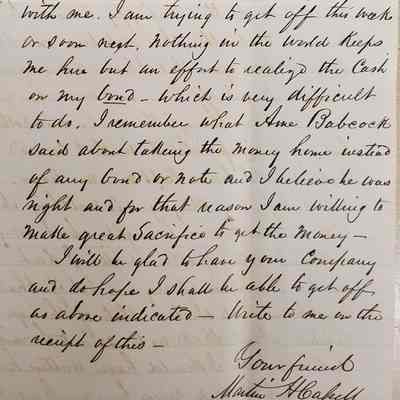 with me. I am trying to get off this week
or soon next. Nothing in the world keeps
me here but an effort to realize the Cash
on my bond - which is very difficult
to do. I remember what Ame Babcock
said about taking the money home instead
of any bond or note and I believe he was
right and for that reason I am willing to
make great Sacrifice to get the money -
I will be glad to have your Company
and do hope I shall be able to get off
as above indicated - Write to me on the
reciept of this -
Your friend
Martin H